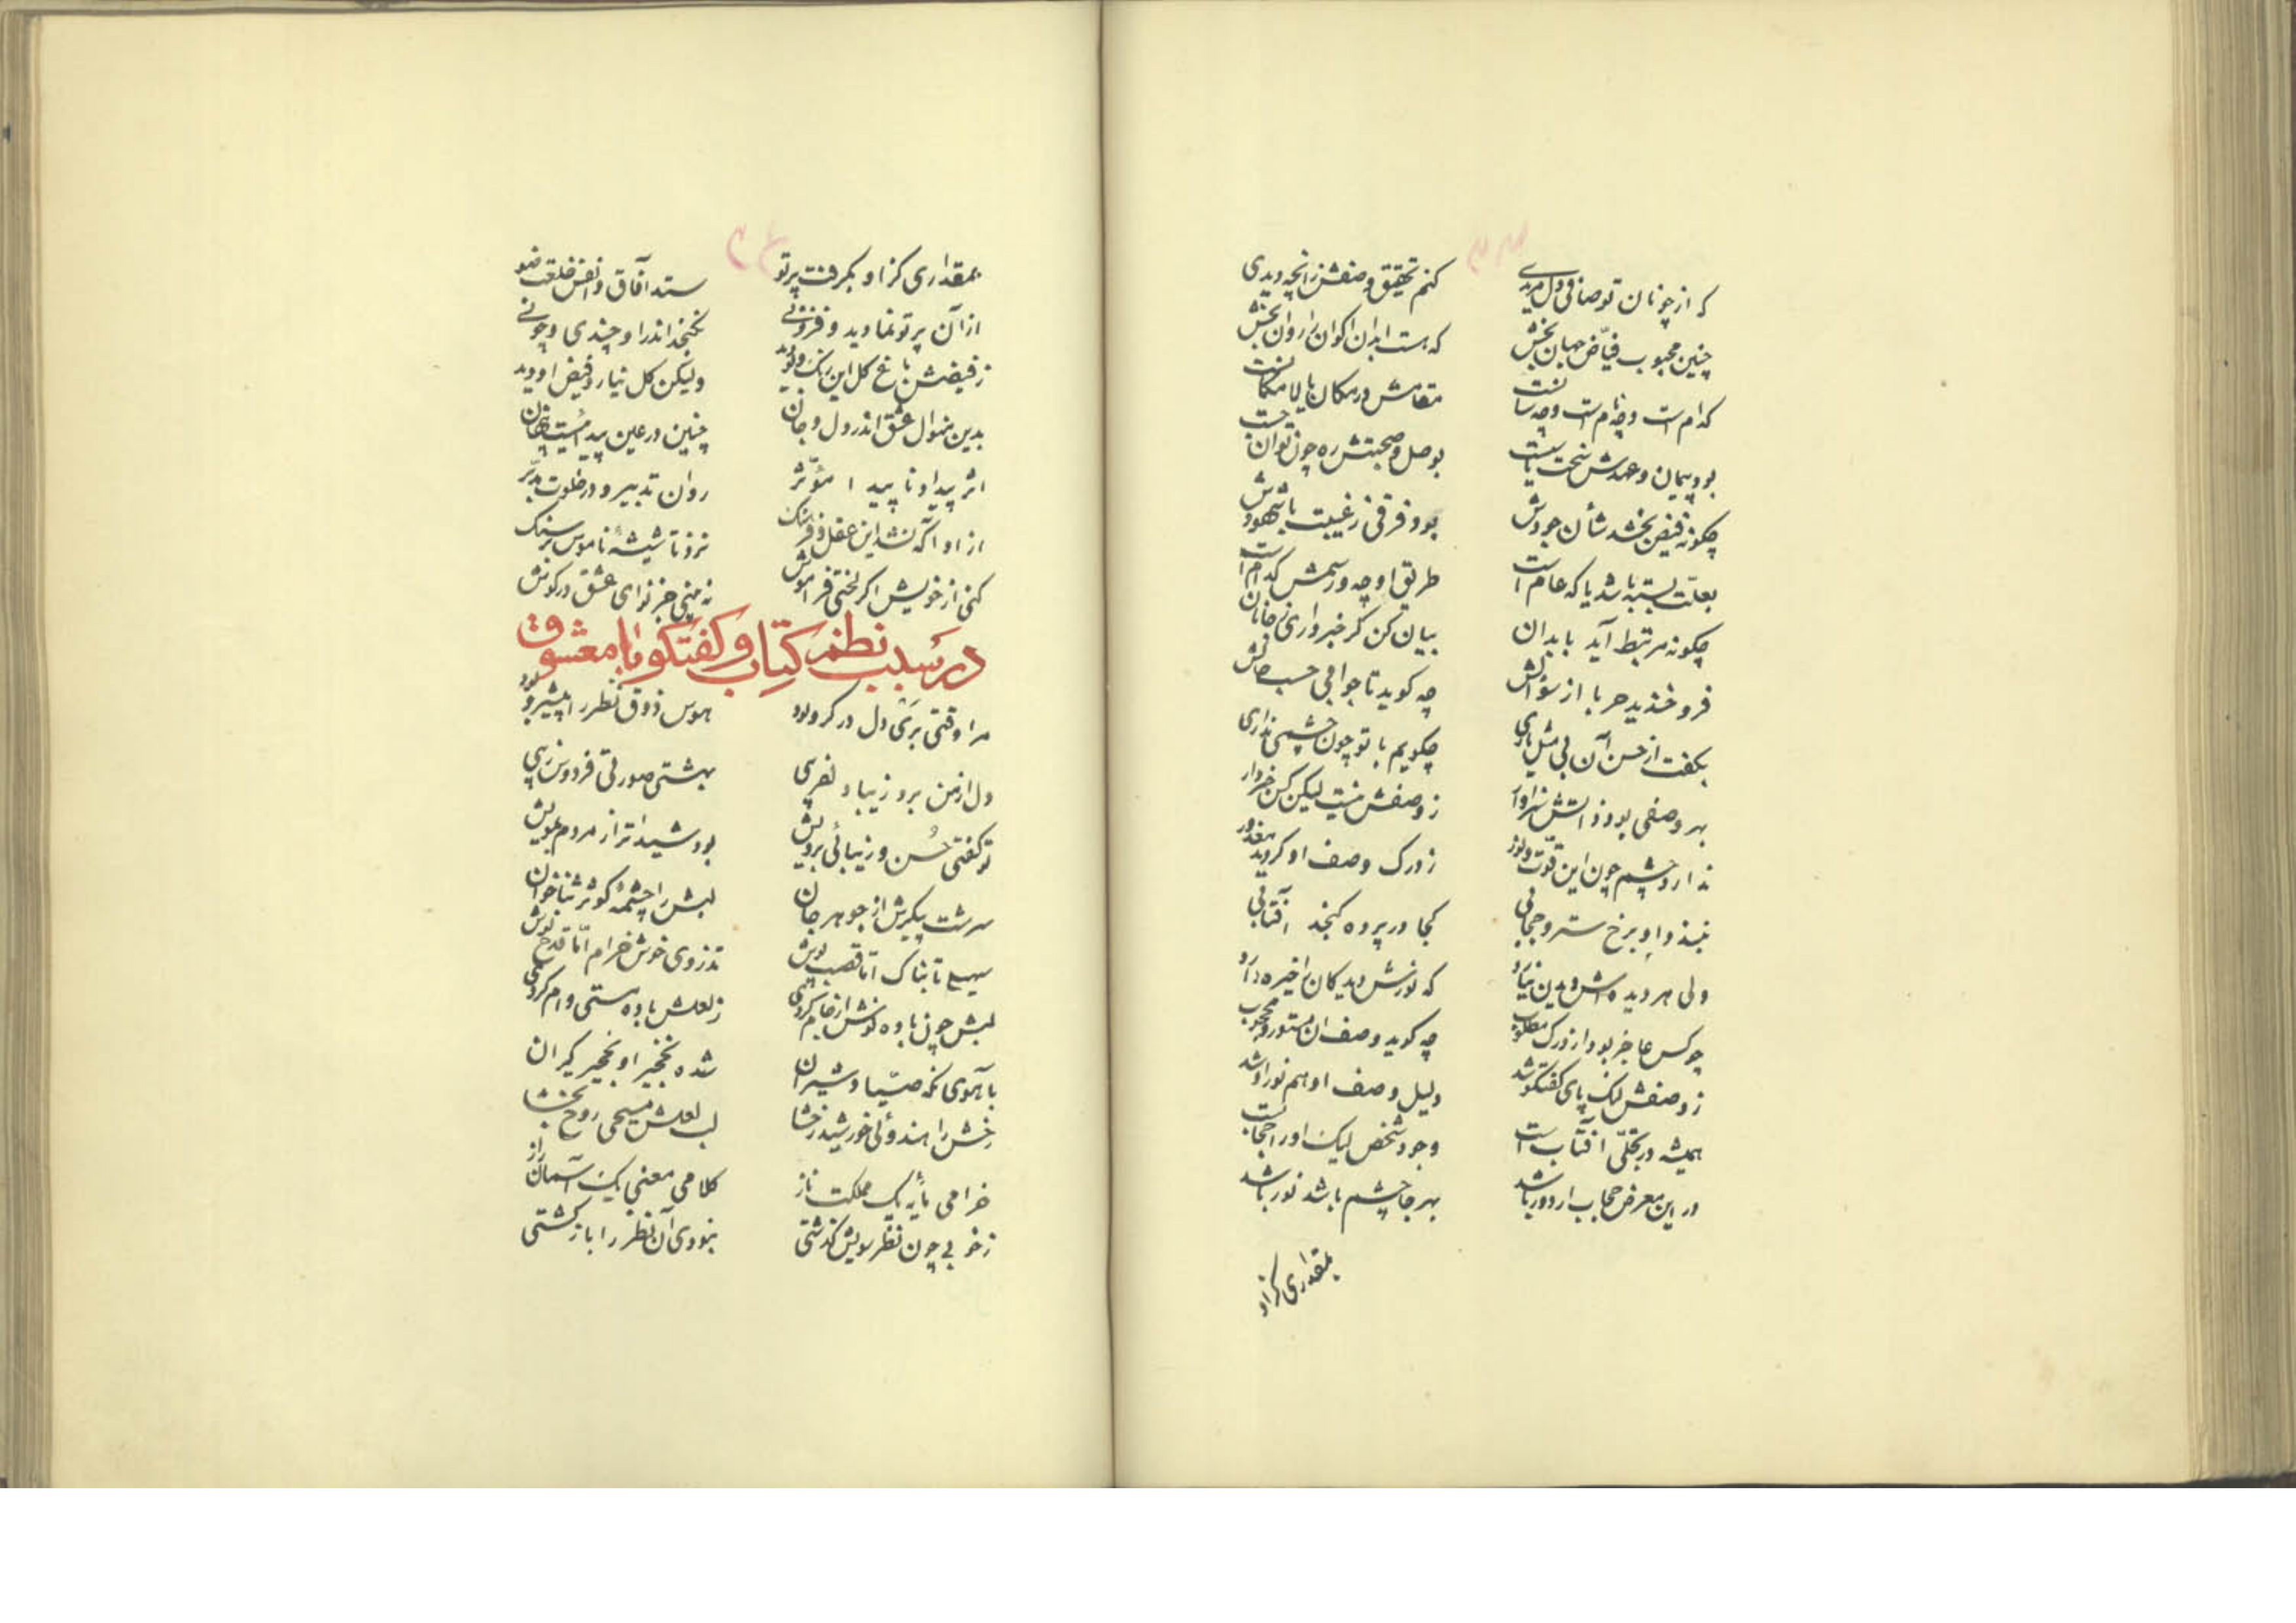 که از چونان تو صافی دل مریدی
کنم تحقیق وصفش زانچه دیدی
چنین محبوب فیّاض جهان بخش
که هست ابدان اکوان را روان بخش
کدام است و چه نام است و چه سانست
مقامش در مکان یا لامکانست
بود پیمان و عهدش سخت یا سست
بوصل و صحبتش ره چون توان جست
چگونه فیض بخشد شأن جودش
بود فرقی ز غیبت با شهودش
بعلّت بسته باشد یا که عام است
طریق او چه و رسمش کدام است
چگونه مرتبط آید بابدان
بیان کن گر خبر داری ز جانان
فرو خندید حربا از سؤالش
چه گوید تا جوابی حسب حالش
بگفت از حسن آن بی مثل
چگویم با تو چون چشمی نداری
بهر وصفی بود ذاتش سزاوار
ز وصفش نیست لیکن کس خبردار
ندارد چشم چون این قوّت و نور
ز درک وصف او گردید معذور
نبندد او برخ ستر و حجابی
کجا در پرده گنجد آفتابی
ولی هر دیده‌اش دیدن نیارد
که نورش دیدگان را خیره دارد
چو کس عاجز بود از درک مطلوب
چه گوید وصف آن مستور و محجوب
ز وصفش لنگ پای گفتگو شد
دلیل وصف او هم نور او شد
همیشه در تجلّی آفتاب است
وجود شخص لیک او را حجابست
در این معرض حجاب ار دور باشد
بهر جا چشم باشد نور باشد
بمقداری کز او
۴۴
بمقداری کز او بگرفت پرتو
ستد آفاق و انفس خلعت ضو
از آن پرتو نماوید و فزونی
نگنجد اندر او چندی و چونی
ز فیضش باغ گل این رنگ و بو دید
ولیکن گل نیارد فیض او دید
بدین منوال عشق اندر دل و جان
چنین در عین پیدائیست پنهان
اثر پیدا و ناپیدا مؤثّر
روان تدبیر و در خلوت مدبّر
از او آگه نشد این عقل و فرهنگ
نزد تا شیشهٔ ناموس بر سنگ
کنی از خویش اگر لختی فراموش
نه بینی جز نوای عشق در گوش
در سبب نظم کتاب و گفتگو با معشوق
مرا وقتی بتی دل در گرو بود
هوس ذوق نظر را پیشرو بود
دل از من برد زیبا دلفریبی
بهشتی صورتی فردوس زیبی
تو گفتی حسن و زیبائی برویش
بود شیداتر از مردم بمویش
سرشت پیکرش از جوهر جان
لبش را چشمهٔ کوثر ثناخوان
سهیلی تابناک امّا قصب پوش
تذروی خوش خرام امّا قدح نوش
لبش چون باده نوش از جام کردی
ز لعلش باده مستی وام کردی
با آهوی نگه صیّاد شیران
شده نخجیر او نخجیر گیران
رخش را هندوئی خورشید رخشا
لب لعلش مسیحی روح بخشا
خرامی مایه یک مملکت ناز
کلامی معنی یک آسمان راز
ز خوبی چون نظر سویش گذشتی
نبودی آن نظر را بازگشتی